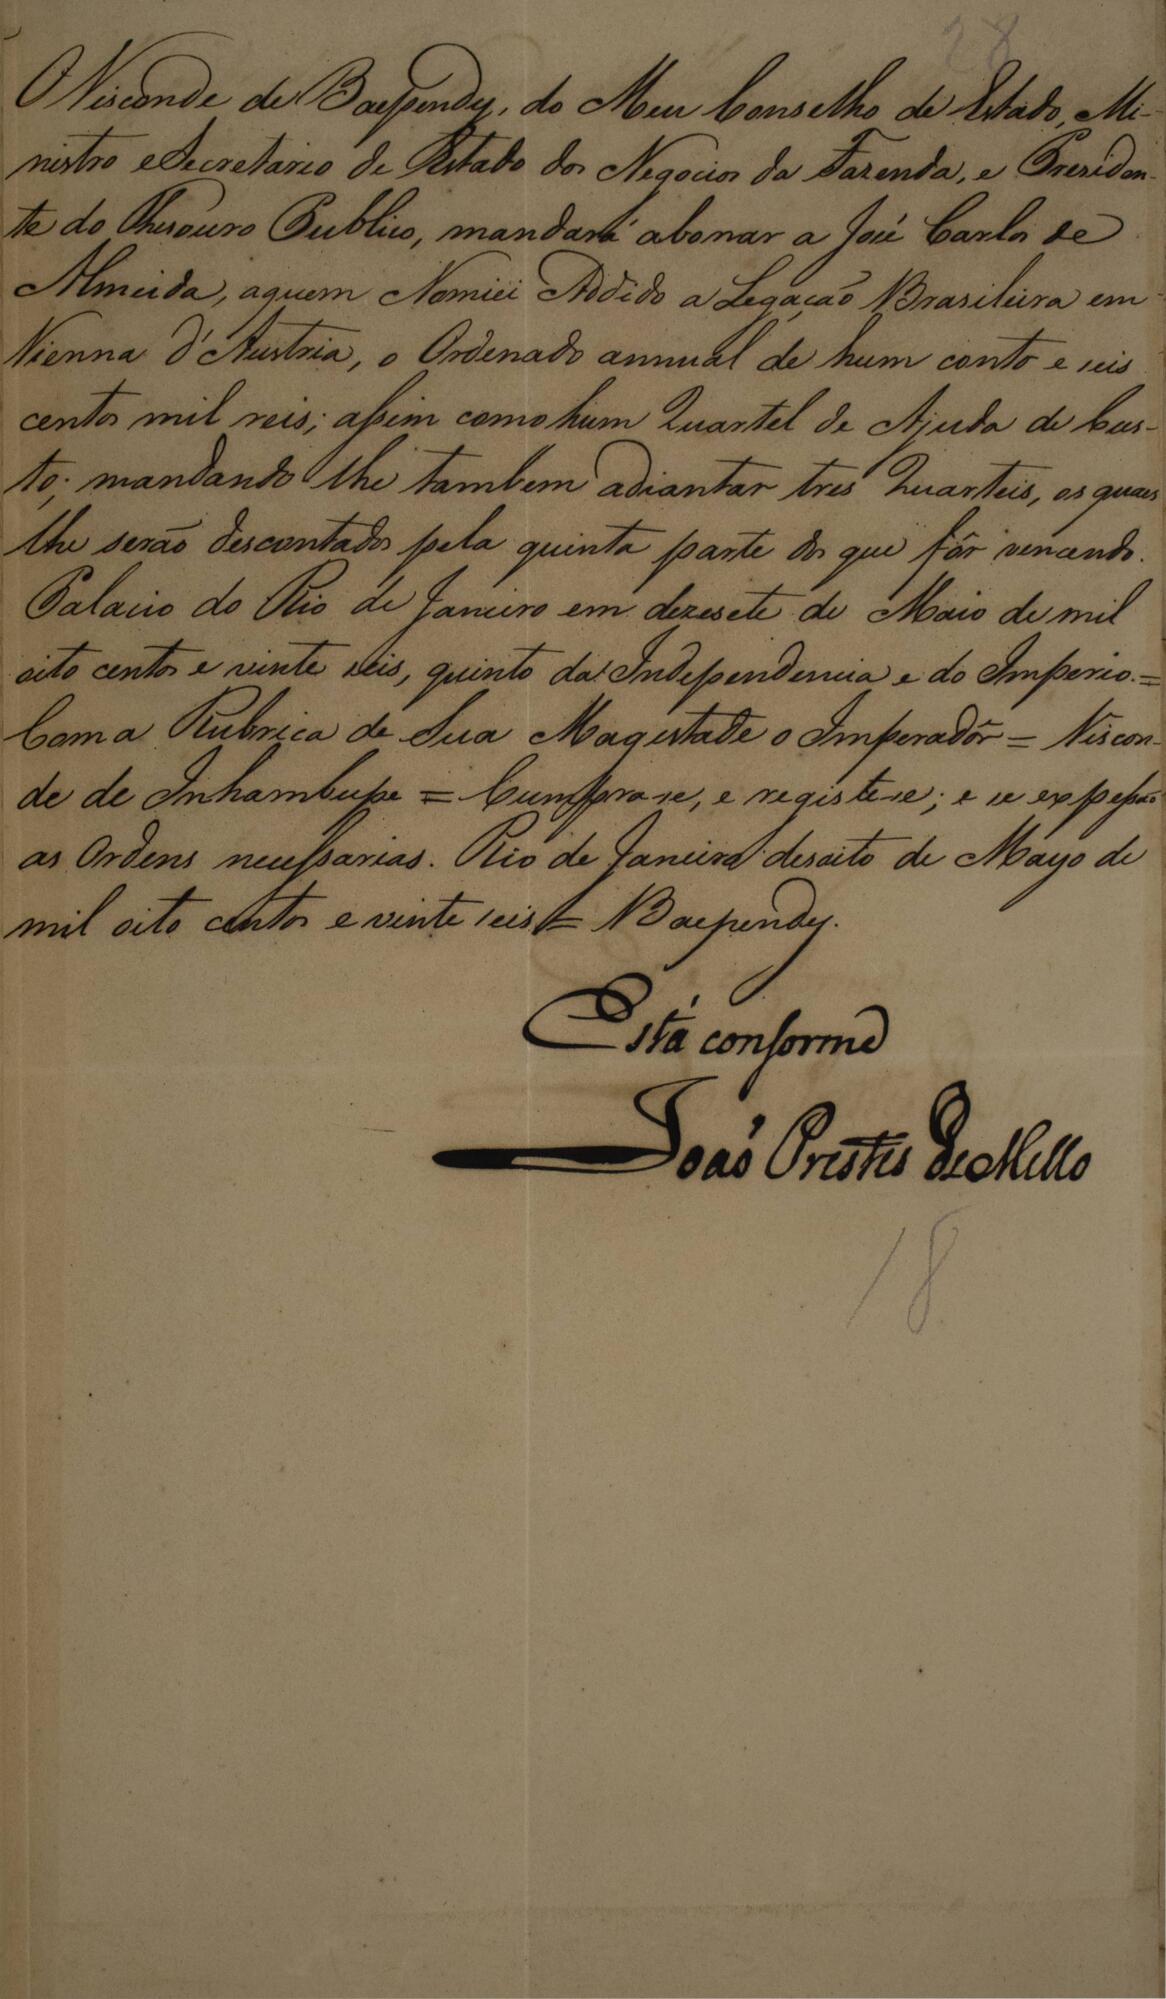 28
O Visconde de Baependy, do Meu Conselho de Estado, Mi-
nistro e Secretario de Estado dos Negocios da Fazenda, e Presiden-
te do Thesouro Publico, mandará abonar a José Carlos de
Almeida, aquem Nomiei Addido a Legação Brasileira em
Vienna d'Austria, o Ordenado annual de hum conto e seis
centos mil reis; assim como hum Quartel de Ajuda de Cus-
to; mandando lhe tambem adiantar tres Quarteis, os quaes
lhe serão descontados pela quinta parte dos que fôr vencendo.
Palacio do Rio de Janeiro em dezesete de Maio de mil
oito centos e vinte seis, quinto da Independencia e do Imperio. =
Com a Rubrica de Sua Magestade o Imperadôr = Viscon-
de de Inhambupe = Cumpra-se, e registe-se; e se expessão
as Ordens necessarias. Rio de Janeiro desoito de Mayo de
mil oito centos e vinte seis = Baependy.
Está conforme
João Prestes de Mello
18